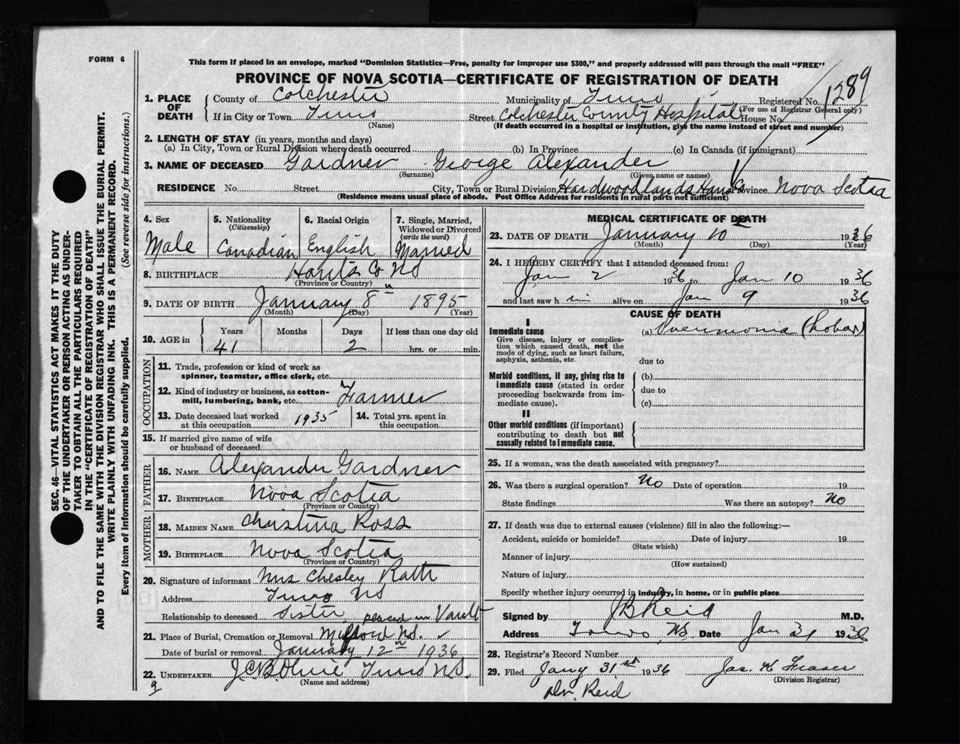 FORM 6
This form if placed in an envelope, marked "Dominion Statistics—Free, penalty for improper use $300," and properly addressed will pass through the mail "FREE"
PROVINCE OF NOVA SCOTIA—CERTIFICATE OF REGISTRATION OF DEATH
1289
1. PLACE OF DEATH County of Colchester Municipality of Truro Registered No. (For use of Registrar General only)
If in City or Town Truro (Name) Street Colchester County Hospital House No.
(If death occurred in a hospital or institution, give the name instead of street and number)
2. LENGTH OF STAY (in years, months and days)
(a) In City, Town or Rural Division where death occurred (b) In Province (c) In Canada (if immigrant)
3. NAME OF DECEASED Gardner George Alexander
(Surname) (Given name or names)
RESIDENCE No. Street City, Town or Rural Division Hardwoodlands Hants Province Nova Scotia
(Residence means usual place of abode. Post Office Address for residents in rural parts not sufficient)
4. Sex 5. Nationality (Citizenship) 6. Racial Origin 7. Single, Married, Widowed or Divorced (write the word)
Male Canadian English Married
8. BIRTHPLACE Hants Co NS
(Province or Country)
9. DATE OF BIRTH January 8th 1895
(Month) (Day) (Year)
10. AGE in Years Months Days If less than one day old
41 2 hrs. or min.
OCCUPATION
11. Trade, profession or kind of work as spinner, teamster, office clerk, etc.
12. Kind of industry or business, as cotton-mill, lumbering, bank, etc. Farmer
13. Date deceased last worked at this occupation 1935 14. Total yrs. spent in this occupation
15. If married give name of wife or husband of deceased
FATHER
16. NAME Alexander Gardner
17. BIRTHPLACE Nova Scotia
(Province or Country)
MOTHER
18. MAIDEN NAME Christina Ross
19. BIRTHPLACE Nova Scotia
(Province or Country)
20. Signature of informant Mrs Chesley Rath
Address Truro NS
Relationship to deceased Sister placed in Vault
21. Place of Burial, Cremation or Removal Milford NS.
Date of burial or removal January 12th 1936
22. UNDERTAKER Truro NS.
(Name and address)
9
MEDICAL CERTIFICATE OF DEATH
23. DATE OF DEATH January 10th 1936
(Month) (Day) (Year)
24. I HEREBY CERTIFY that I attended deceased from:
Jan 2 1936 to Jan 10 1936
and last saw h im alive on Jan 9 1936
CAUSE OF DEATH
I
Immediate cause (a) Pneumonia (Lobar)
Give disease, injury or complication which caused death, not the mode of dying, such as heart failure, asphyxia, asthenia, etc.
due to
Morbid conditions, if any, giving rise to immediate cause (stated in order proceeding backwards from immediate cause).
(b)
due to
(c)
II
Other morbid conditions (if important) contributing to death but not causally related to immediate cause.
25. If a woman, was the death associated with pregnancy?
26. Was there a surgical operation? No Date of operation 19
State findings Was there an autopsy? No
27. If death was due to external causes (violence) fill in also the following:—
Accident, suicide or homicide? Date of injury 19
(State which)
Manner of injury
(How sustained)
Nature of injury
Specify whether injury occurred in industry, in home, or in public place
Signed by JB Reid M.D.
Address Truro NS Date Jan 31 1936
28. Registrar's Record Number
29. Filed Jany 31st 1936 Jas. H Fraser
(Division Registrar)
Dr. Reid
SEC. 46—VITAL STATISTICS ACT MAKES IT THE DUTY
OF THE UNDERTAKER OR PERSON ACTING AS UNDER-
TAKER TO OBTAIN ALL THE PARTICULARS REQUIRED
IN THE "CERTIFICATE OF REGISTRATION OF DEATH"
AND TO FILE THE SAME WITH THE DIVISION REGISTRAR WHO SHALL ISSUE THE BURIAL PERMIT.
WRITE PLAINLY WITH UNFADING INK. THIS IS A PERMANENT RECORD.
Every item of information should be carefully supplied. (See reverse side for instructions.)